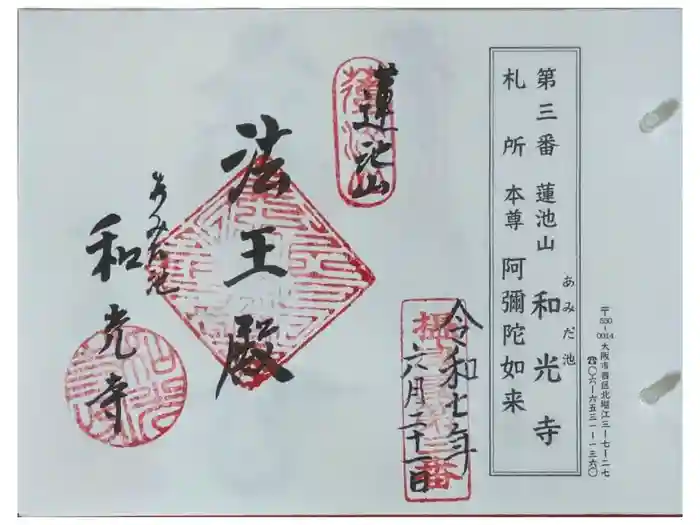 第三番 蓮池山 和光寺
あみだ池
札所 本尊 阿彌陀如来
〒550-0014 大阪市西区北堀江三ー七ー二七
☎〇六ー六五三一ー一三六〇
蓮池山
令和七年
六月二十一日
法王殿
あみだ池
和光寺